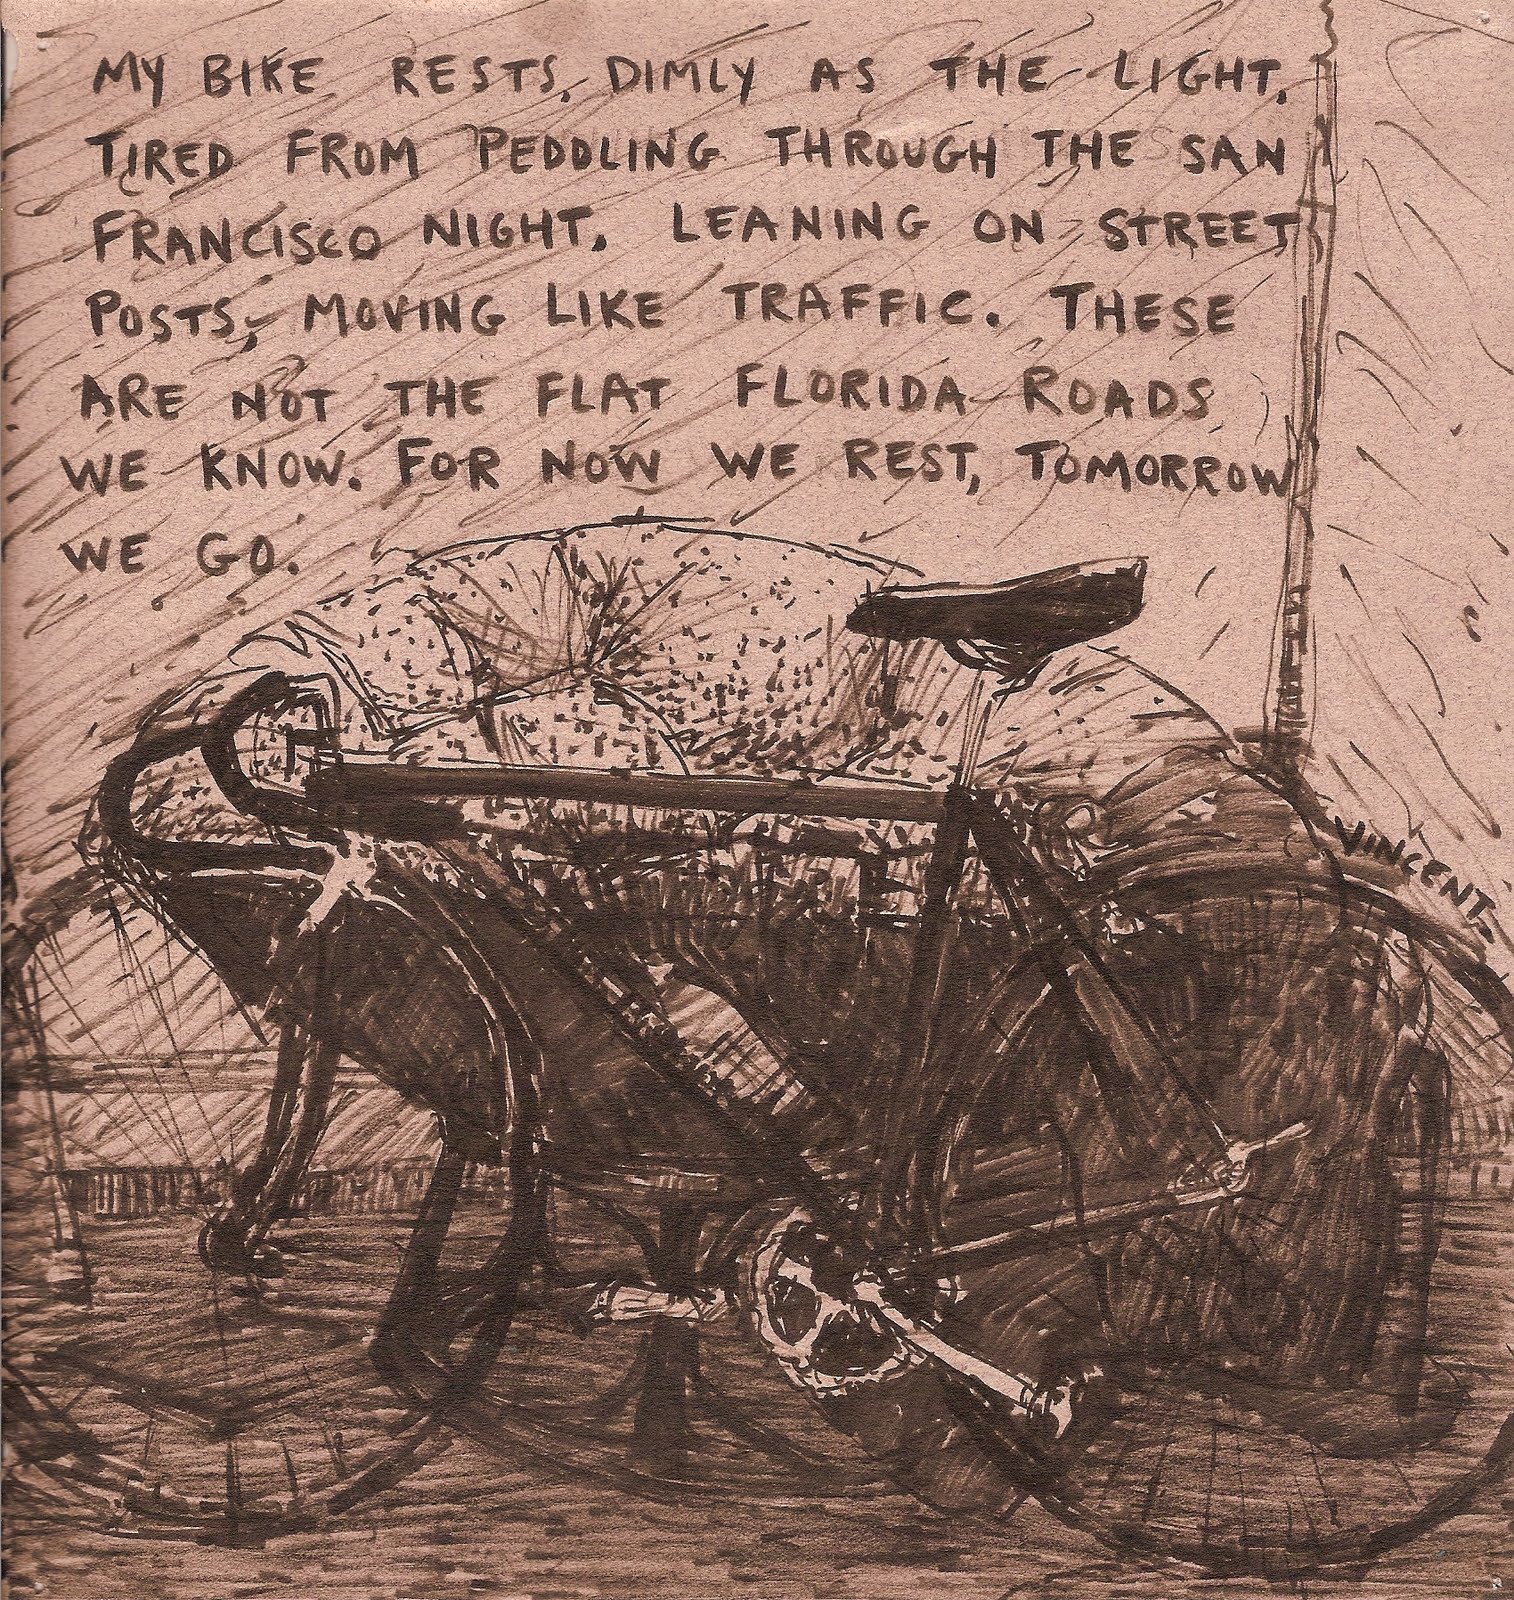 MY BIKE RESTS, DIMLY AS THE LIGHT,
TIRED FROM PEDDLING THROUGH THE SAN
FRANCISCO NIGHT, LEANING ON STREET
POSTS, MOVING LIKE TRAFFIC. THESE
ARE NOT THE FLAT FLORIDA ROADS
WE KNOW. FOR NOW WE REST, TOMORROW
WE GO.
VINCENT